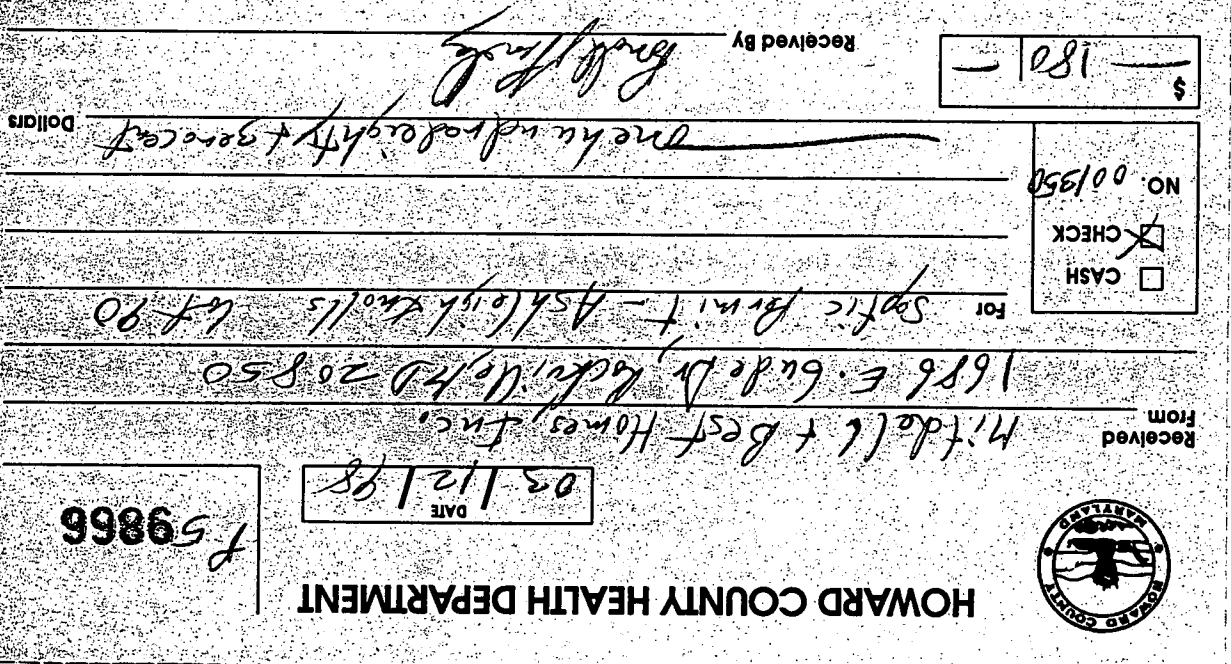 HOWARD COUNTY HEALTH DEPARTMENT
HOWARD COUNTY
MARYLAND
DATE
03/12/98
P 59866
Received From
Mitchell & Best Homes, Inc.
1686 E. Gude Dr, Rockville, MD 20850
For Septic Permit - Ashleigh Knolls Lot 90
CASH
CHECK
NO. 001350
one hundred eighty & zero cent Dollars
$ 180 —
Received By